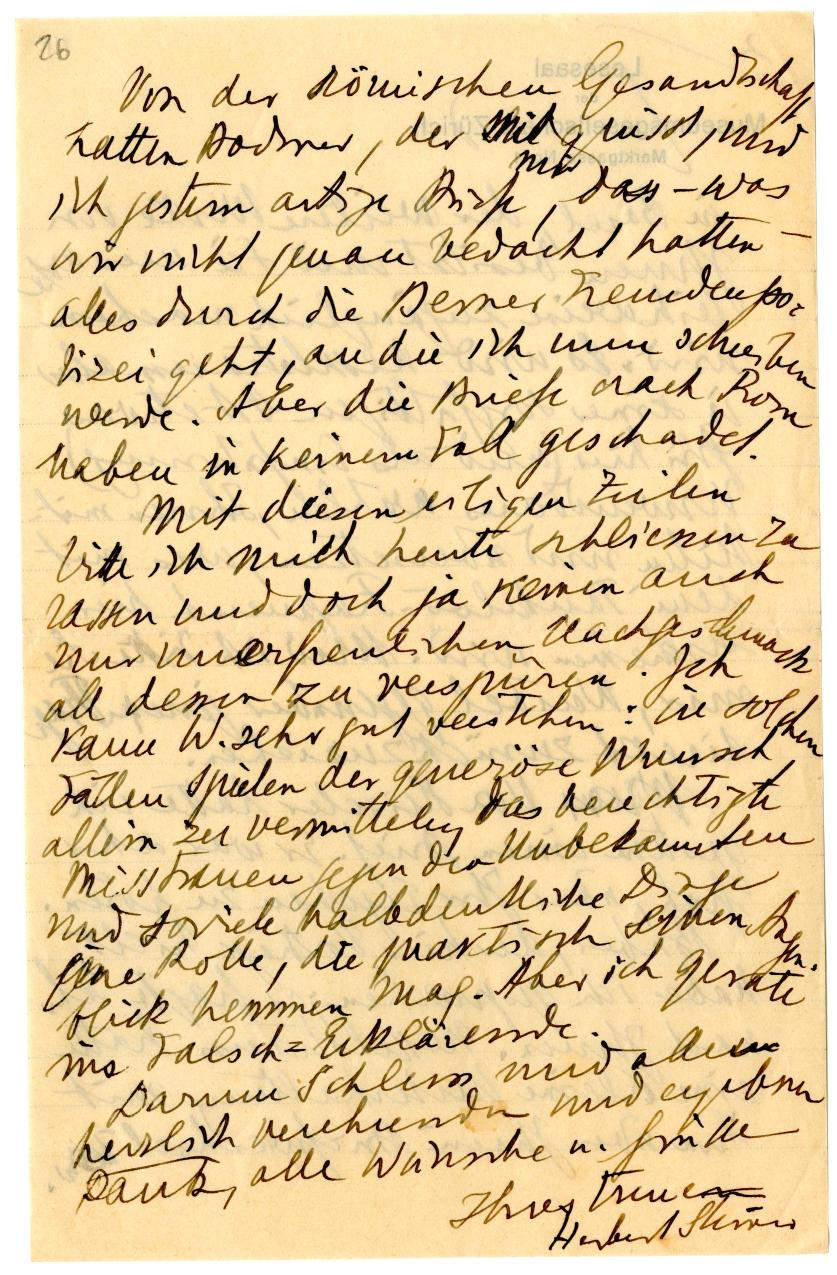 26
Von der Römischen Gesandtschaft
hatten Bodmer, der mit grüsst, und
mir
ich gestern artige Briefe, dass – was
wir nicht genau bedacht hatten –
alles durch die Berner Fremdenpo=
lizei geht, an die ich nun schreiben
werde. Aber die Briefe nach Rom
haben in keinem Fall geschadet.
Mit diesen eiligen Zeilen
bitte ich mich heute schliessen zu
lassen und doch ja keinen auch
nur unerfreulichen Nachgeschmack
all dessen zu verspüren. Ich
kann W. sehr gut verstehen: in solchen
Fällen spielen der generöse Wunsch,
allein zu vermitteln, das berechtigte
Misstrauen gegen den Unbekannten
und soviele halbdeutliche Dinge
eine Rolle, die praktisch einen Augen-
blick hemmen mag. Aber ich gerate
ins Falsch=Erklärende.
Darum Schluss und allen
herzlich verehrenden und ergebenen
Dank, alle Wünsche u. Grüsse
Ihres treuen
Herbert Steiner
Lesesaal
der
Museumsgesellschaft Zürich
Marktgasse